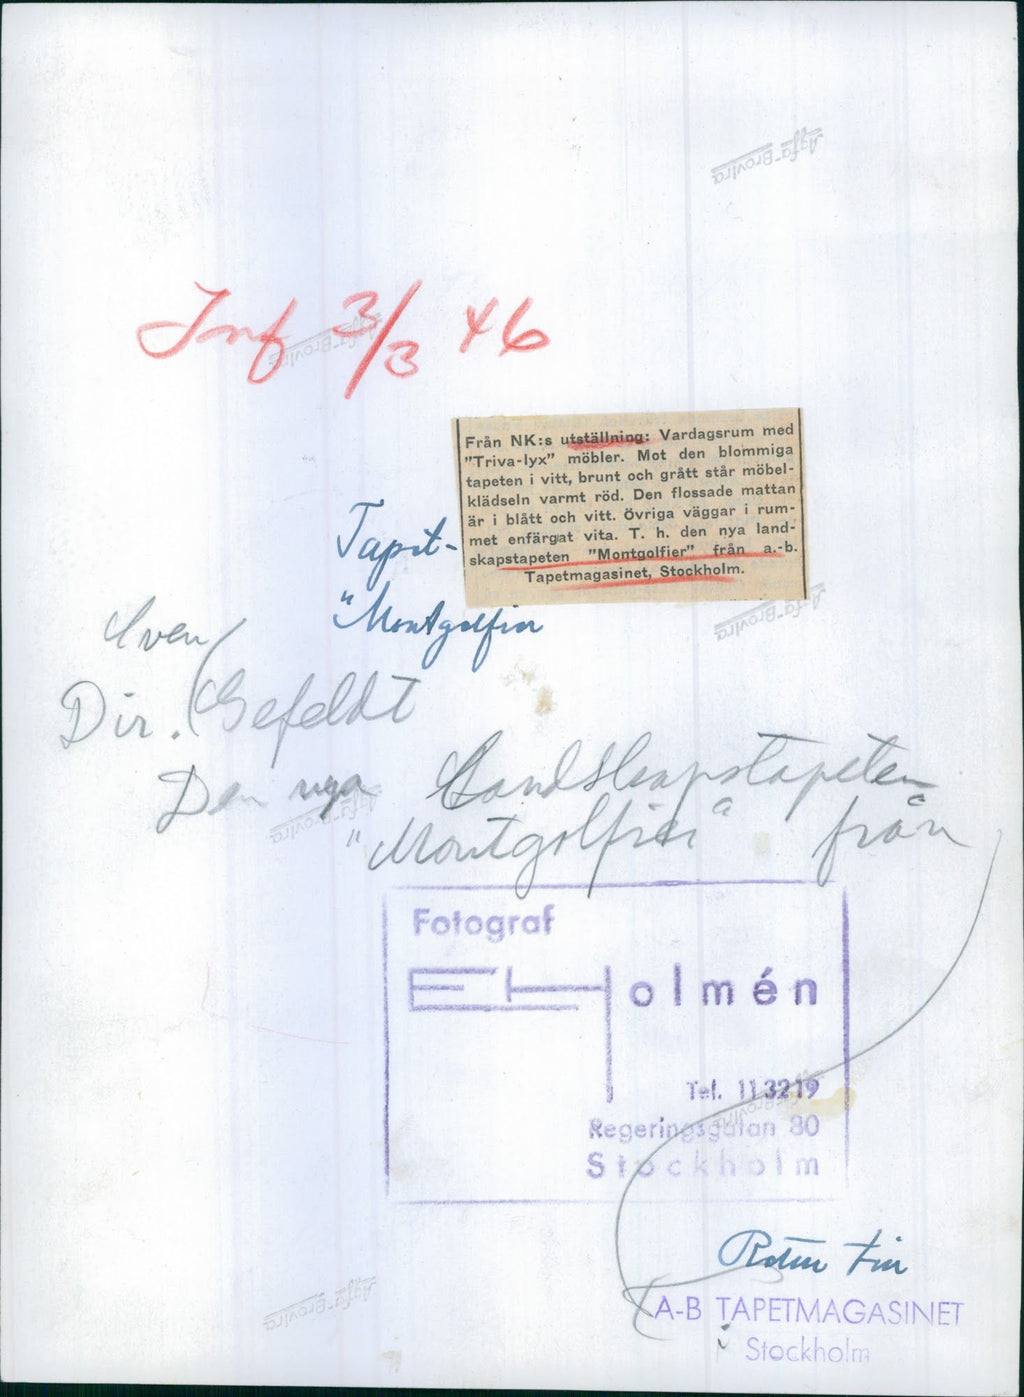 Agfa-Brovira
Inf 3/3 46
Agfa-Brovira
Från NK:s utställning: Vardagsrum med
"Triva-lyx" möbler. Mot den blommiga
tapeten i vitt, brunt och grått står möbel-
klädseln varmt röd. Den flossade mattan
är i blått och vitt. Övriga väggar i rum-
met enfärgat vita. T. h. den nya land-
skapstapeten "Montgolfier" från a.-b.
Tapetmagasinet, Stockholm.
Tapet-
"Montgolfier
Agfa-Brovira
Sven
Dir. Gefeldt
Den nya Landskapstapeten
Agfa-Brovira
"Montgolfier" från
Fotograf
EHolmén
Tel. 113219
Agfa-Brovira
Regeringsgatan 80
Stockholm
Retur till
Agfa-Brovira
A-B TAPETMAGASINET
i Stockholm